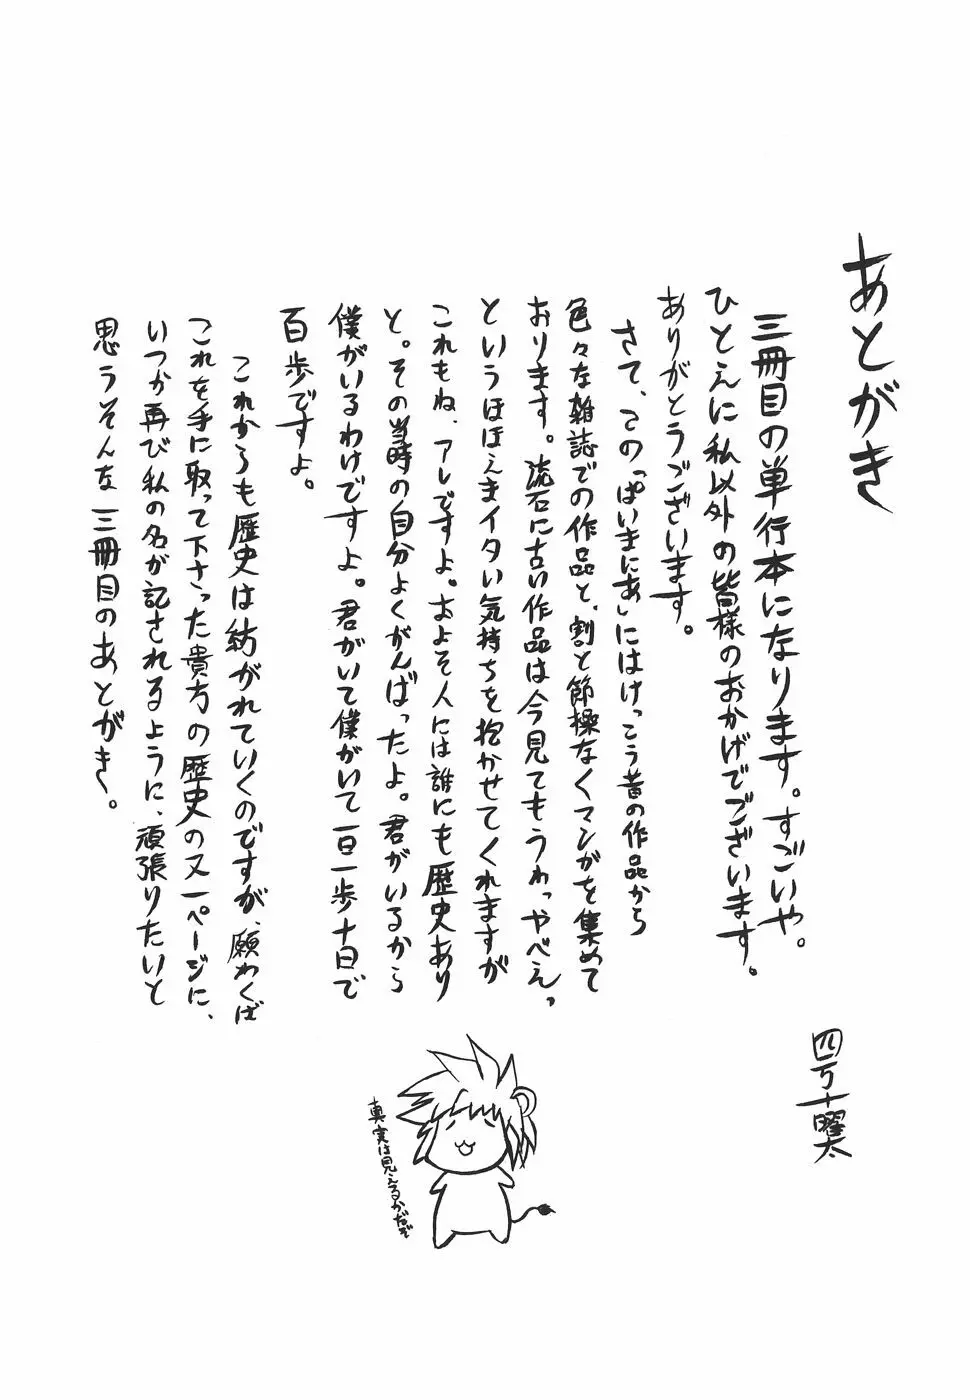 あとがき
三冊目の単行本になります。すごいや。
ひとえに私以外の皆様のおかげでございます。
ありがとうございます。
さて、この「ぱいまにあ」にはけっこう昔の作品から
色々な雑誌での作品と、割と節操なくマンガを集めて
おります。流石に古い作品は今見てもうわっやべえっ
というほほえまイタい気持ちを抱かせてくれますが
これもね、アレですよ。およそ人には誰にも歴史あり
と。その当時の自分よくがんばったよ。君がいるから
僕がいるわけですよ。君がいて僕がいて一日一歩十日で
百歩ですよ。
これからも歴史は紡がれていくのですが、願わくば
これを手に取って下さった貴方の歴史の又一ページに、
いつか再び私の名が記されるように、頑張りたいと
思うそんな三冊目のあとがき。
四万十曜太
真実は見えるかだぞ